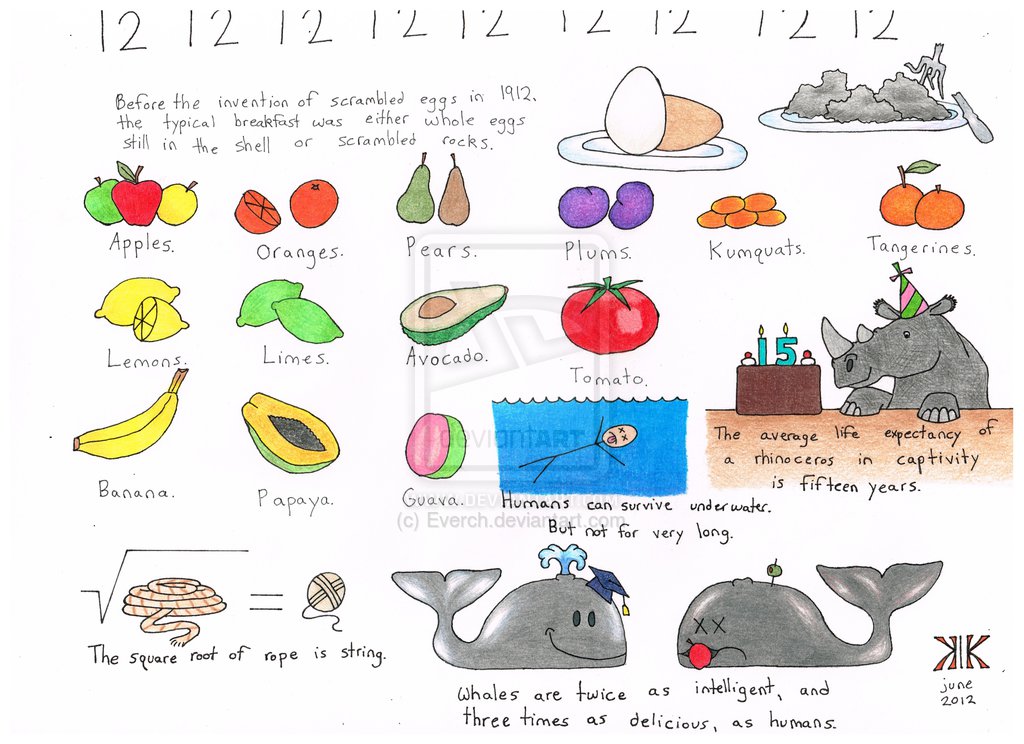 12 12 12 12 12 12 12 12 12
Before the invention of scrambled eggs in 1912,
the typical breakfast was either whole eggs
still in the shell or scrambled rocks.
Apples.
Oranges.
Pears.
Plums.
Kumquats.
Tangerines.
Lemons.
Limes.
Avocado.
Tomato.
15
The average life expectancy of
a rhinoceros in captivity
is fifteen years.
Banana.
Papaya.
Guava.
deviantART
Humans can survive underwater.
But not for very long.
(c) Everch.deviantart.com
The square root of rope is string.
Whales are twice as intelligent, and
three times as delicious, as humans.
KK
june
2012